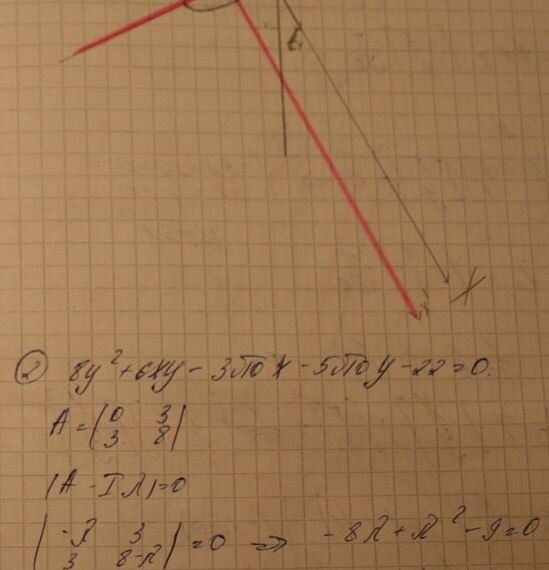 X
② 8y² + 6xy - 3√10 x - 5√10 y - 22 = 0.
A = (0 3
3 8)
|A - Iλ| = 0
|-λ 3
3 8-λ| = 0 => -8λ + λ² - 9 = 0